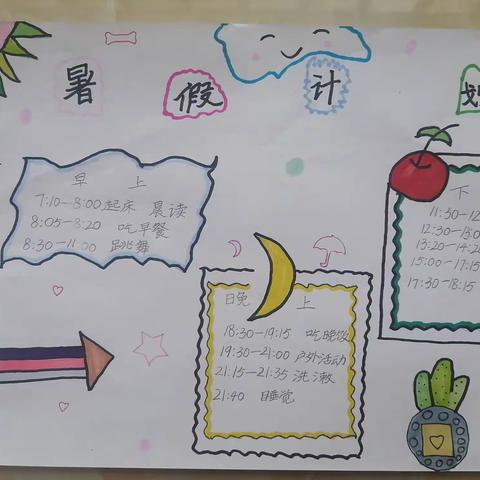 暑假计划
早上
7:10-8:00起床 晨读
8:05-8:20 吃早餐
8:30-11:00 跳舞
下
11:30-12
12:30-13:0
13:20-14:20
15:00-17:15
17:30-18:15
晚上
18:30-19:15 吃晚饭
19:30-21:00 户外活动
21:15-21:35 洗漱
21:40 睡觉